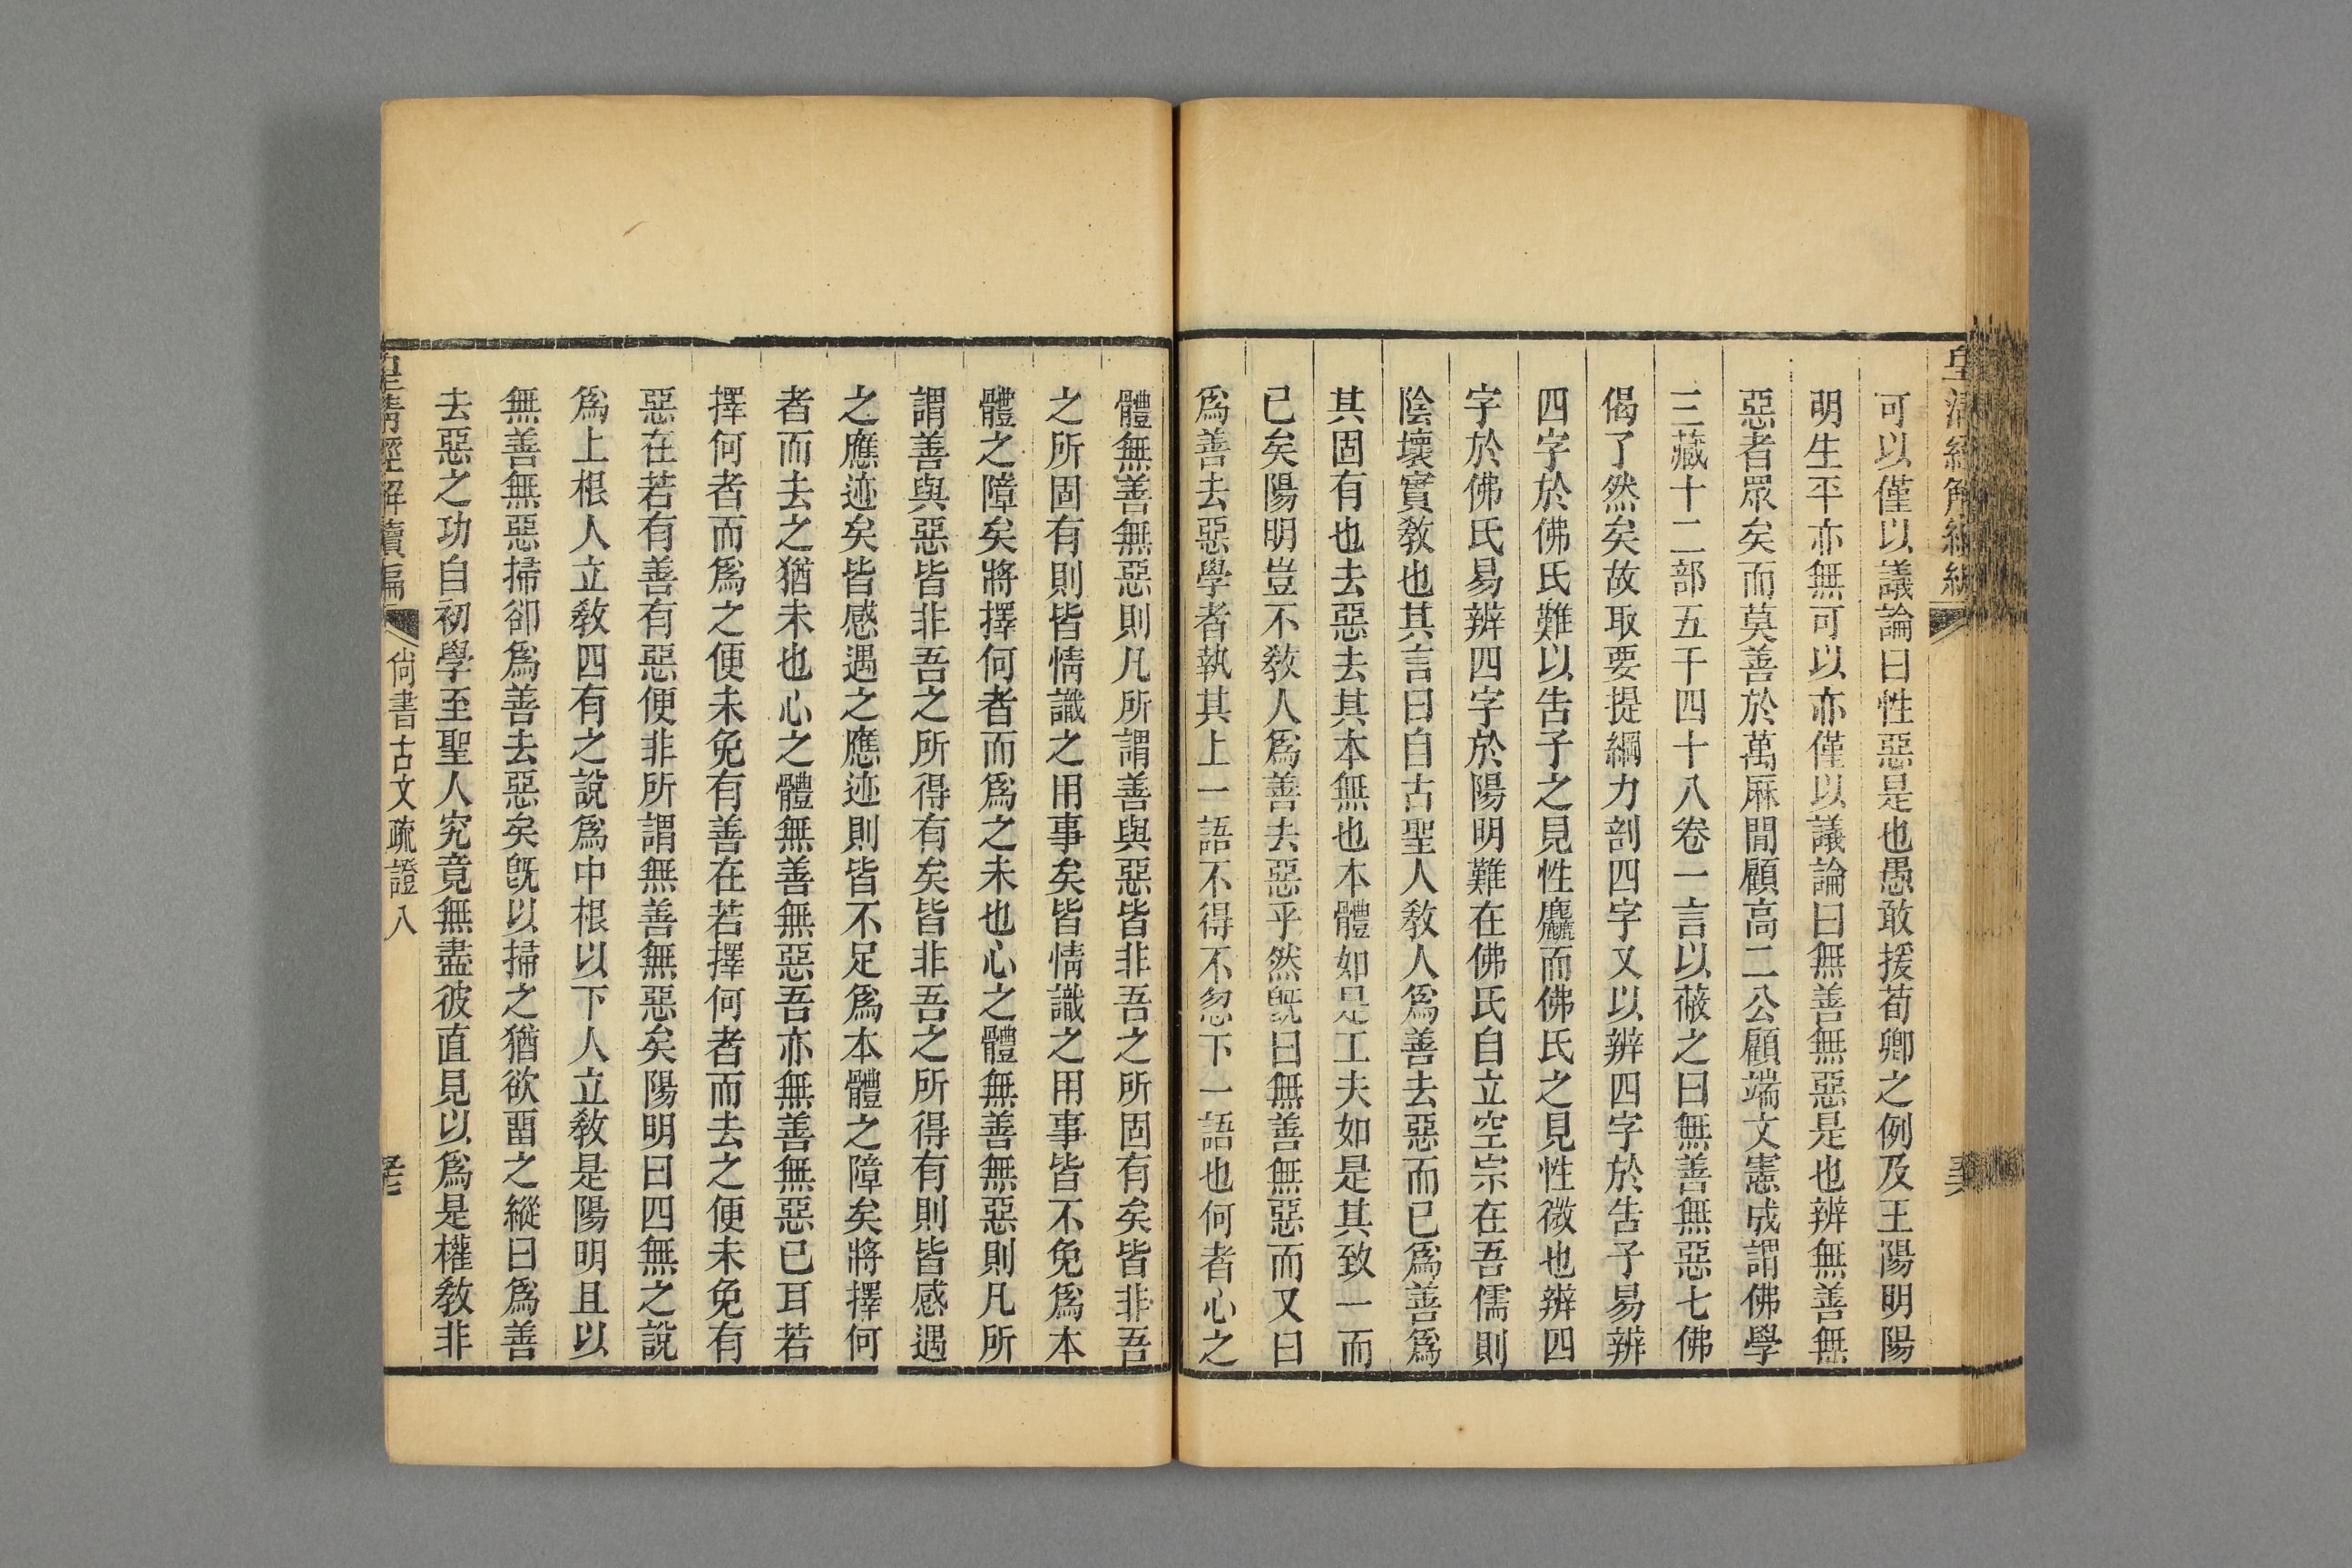 皇清經解續編
可以僅以議論曰性惡是也愚敢援荀卿之例及王陽明陽
明生平亦無可以亦僅以議論曰無善無惡是也辨無善無
惡者眾矣而莫善於萬厤閒顧高二公顧端文憲成謂佛學
三藏十二部五千四十八卷一言以蔽之曰無善無惡七佛
偈了然矣故取要提綱力剖四字又以辨四字於告子易辨
四字於佛氏難以告子之見性麤而佛氏之見性微也辨四
字於佛氏易辨四字於陽明難在佛氏自立空宗在吾儒則
陰壞實敎也其言曰自古聖人敎人爲善去惡而已爲善爲
其固有也去惡去其本無也本體如是工夫如是其致一而
已矣陽明豈不敎人爲善去惡乎然旣曰無善無惡而又曰
爲善去惡學者執其上一語不得不忽下一語也何者心之
體無善無惡則凡所謂善與惡皆非吾之所固有矣皆非吾
之所固有則皆情識之用事矣皆情識之用事皆不免爲本
體之障矣將擇何者而爲之未也心之體無善無惡則凡所
謂善與惡皆非吾之所得有矣皆非吾之所得有則皆感遇
之應迹矣皆感遇之應迹則皆不足爲本體之障矣將擇何
者而去之猶未也心之體無善無惡吾亦無善無惡已耳若
擇何者而爲之便未免有善在若擇何者而去之便未免有
惡在若有善有惡便非所謂無善無惡矣陽明曰四無之說
爲上根人立敎四有之說爲中根以下人立敎是陽明且以
無善無惡掃卻爲善去惡矣旣以掃之猶欲畱之縱曰爲善
去惡之功自初學至聖人究竟無盡彼直見以爲是權敎非
皇清經解續編
尙書古文疏證八